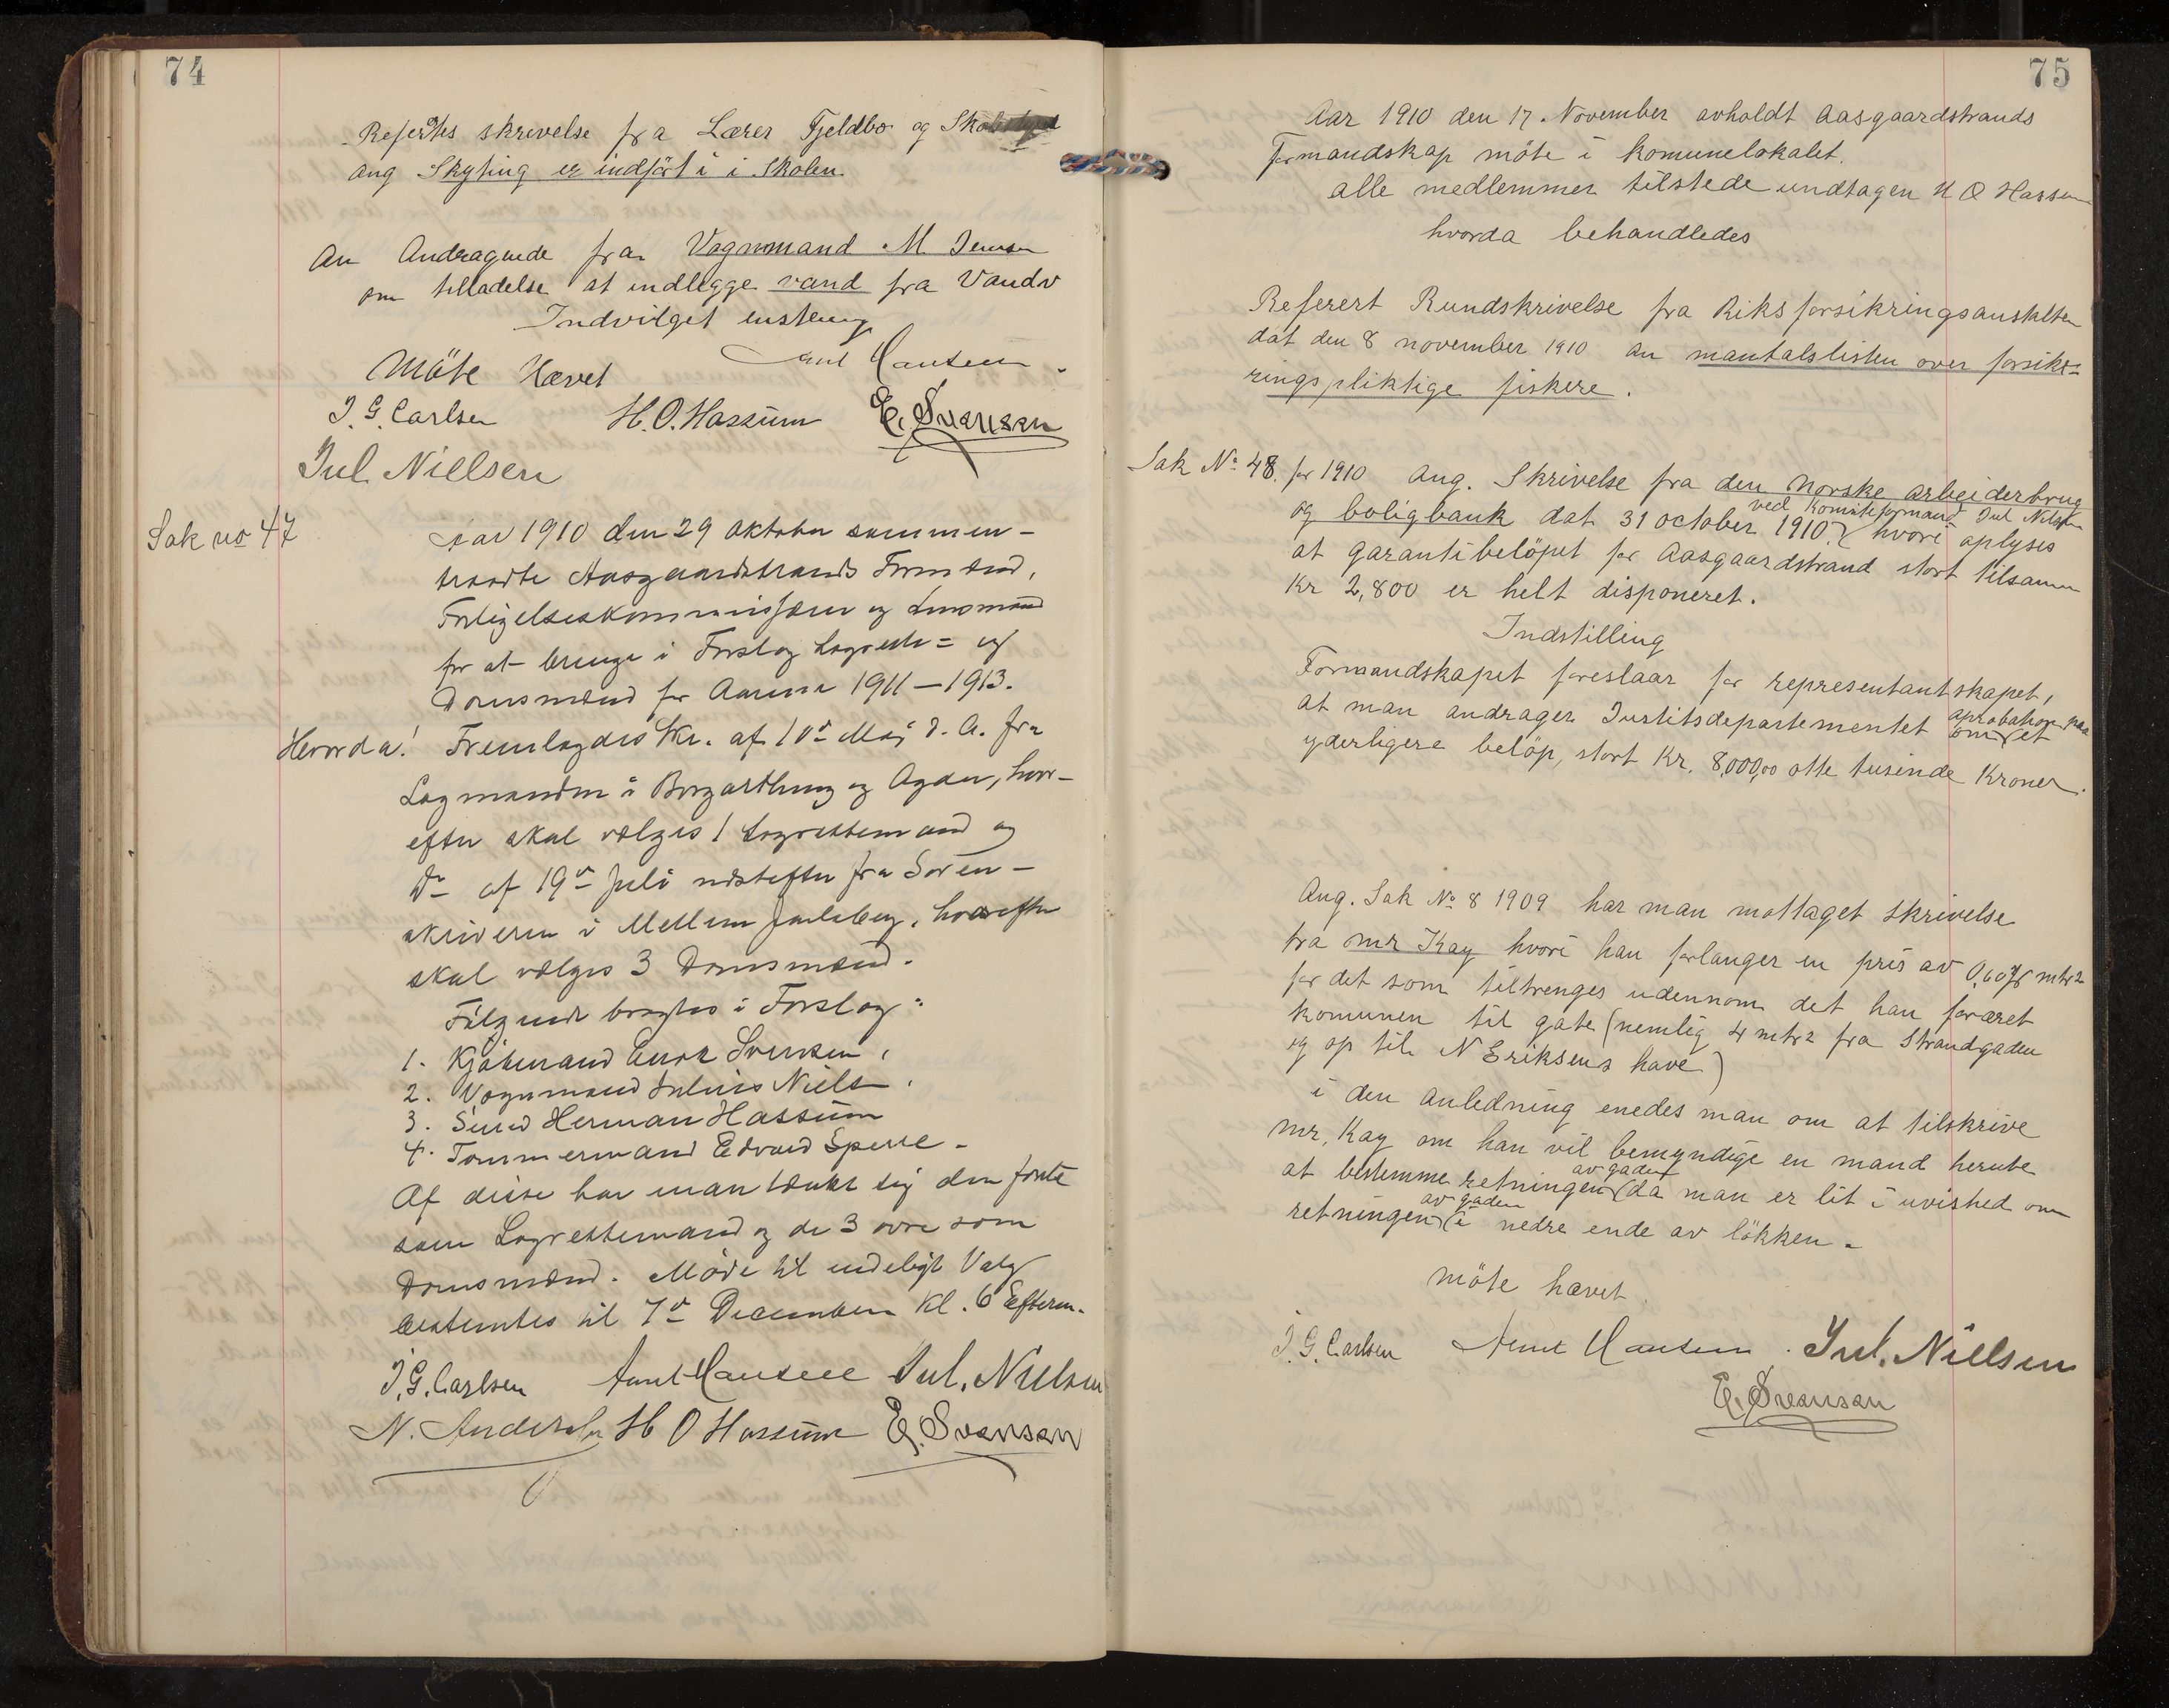 74
Refertes skrivelse fra Lærer Fjeldbo og
ang Skyting er indført i i Skolen
An Andragende fra Vognmand M. Jensen
om tilladelse at indlegge vand fra Vandv
Indvilget enstemg
Möte Hævet
Arnt Hansen
J. G. Carlsen H. O. Hassum E. Svensen
Jul. Nielsen
Sak no 47
Aar 1910 den 29 oktober sammen-
traadte Aasgaardstrands Formænd,
Forligelseskommissærer og Lensmand
for at bringe i Forslag Lagrette= og
Domsmænd for Aarene 1911–1913.
Hvorda! Fremlagdes Skr. af 10de Maj d. A. fra
Lagmanden i Borgarthing og Agder, hvor-
efter skal vælges 1 Lagrettemand og
Do af 19de Juli næstefter fra Soren-
skriveren i Mellem Jarlsberg, hvorefter
skal vælges 3 Domsmænd.
Følgende bragtes i Forslag:
1. Kjøbmand Svensen,
2. Vognmand Julius Niels.
3. Herman Hassum
4. Tømmermand Edvard Sperre.
Af disse har man tænkt sig den første
som Lagrettemand og de 3 øvre som
Domsmænd. Møde til endeligt Valg
bestemtes til 7de December Kl. 6 Efterm.
J. G. Carlsen Arnt Hansen Jul. Nielsen
N. Andersen H O Hassum E. Svensen
75
Aar 1910 den 17. November avholdt Aasgaardstrands
Formandskap möte i komunelokalet.
alle medlemmer tilstede undtagen H O Hassum
hvorda behandledes
Referert Rundskrivelse fra Riksforsikringsanstalten
dat den 8 november 1910 an mantalslisten over forsike=
ringspliktige fiskere.
Sak No 48. for 1910 ang. Skrivelse fra den norske arbeiderbrug
ved komiteformand Jul Nilsen
og boligbank dat 31 october 1910. hvori oplyses
at garantibelöpet for Aasgaardstrand stort tilsamm
Kr 2,800 er helt disponeret.
Indstilling
Formandskapet foreslaar for representantskapet,
aprobation paa
at man andrager Justitsdepartementet om et
yderligere belöp, stort Kr. 8,000,00 otte tusinde Kroner.
Ang. Sak No 8 1909 har man mottaget skrivelse
fra mr Kay hvori han forlanger en pris av 0,60 pr mtr2
for det som tiltrenges udennom det han foræret
komunen til gate (nemlig 4 mtr2 fra Strandgaden
og op til N Eriksens have)
i den anledning enedes man om at tilskrive
mr. Kay om han vil bemyndige en mand herute
av gaden
at bestemme retningen da man er lit i uvished om
av gaden
retningen i nedre ende av lökken.
möte hævet
J. G. Carlsen Arnt Hansen. Jul. Nielsen
E. Svensen